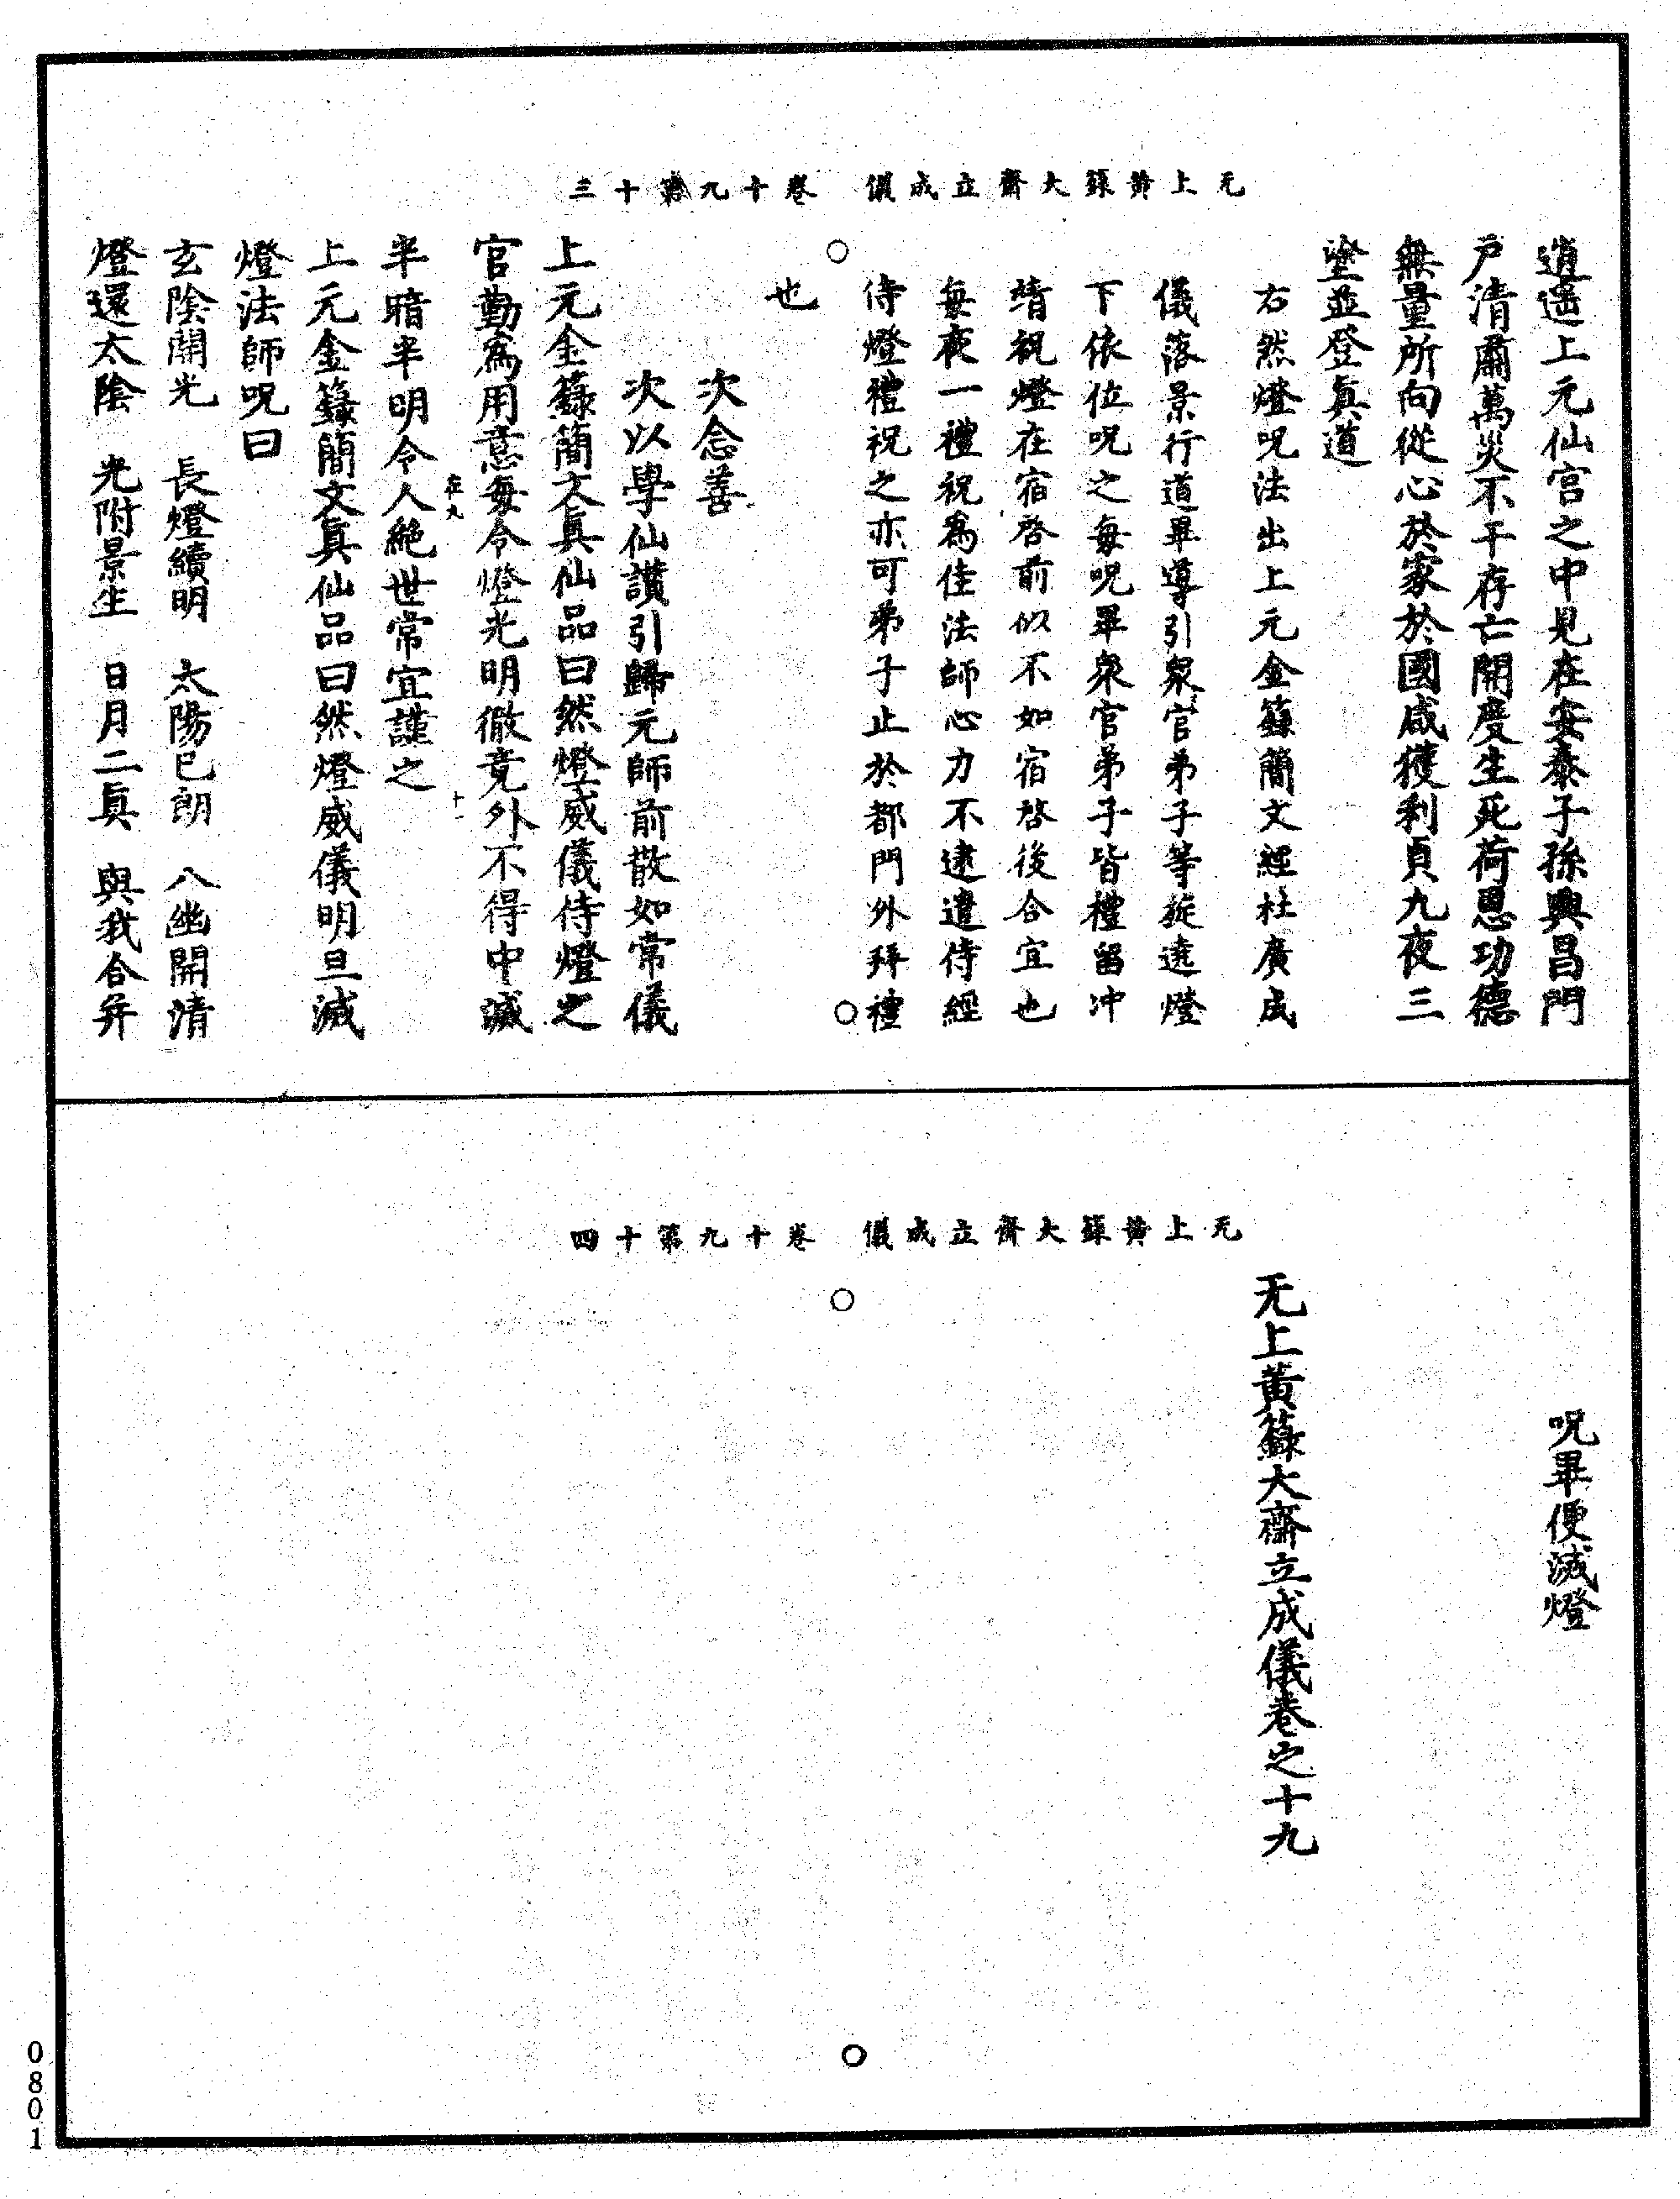 无上黃籙大齋立成儀　卷十九第十三
逍遥上元仙官之中見在安泰子孫興昌門
戶清肅萬災不干存亡開度生死荷恩功德
無量所向從心於家於國咸獲利貞九夜三
塗並登眞道
右然燈呪法出上元金籙簡文經杜廣成
儀落景行道畢導引衆官弟子等旋遶燈
下依位呪之每呪畢衆官弟子皆禮留冲
靖祝燈在宿啓前似不如宿啓後合宜也
每夜一禮祝爲佳法師心力不逮遣侍經
侍燈禮祝之亦可弟子止於都門外拜禮
也
次念善
次以學仙讚引歸元師前散如常儀
上元金籙簡文眞仙品曰然燈威儀侍燈之
官勤爲用意每令燈光明徹竟外不得中滅
在九　十一
半暗半明令人絕世常宜謹之
上元金籙簡文眞仙品曰然燈威儀明旦滅
燈法師呪曰
玄陰開光　長燈續明　太陽已朗　八幽開清
燈還太陰　光附景生　日月二眞　與我合幷
无上黃籙大齋立成儀　卷十九第十四
呪畢便滅燈
无上黃籙大齋立成儀卷之十九
0801